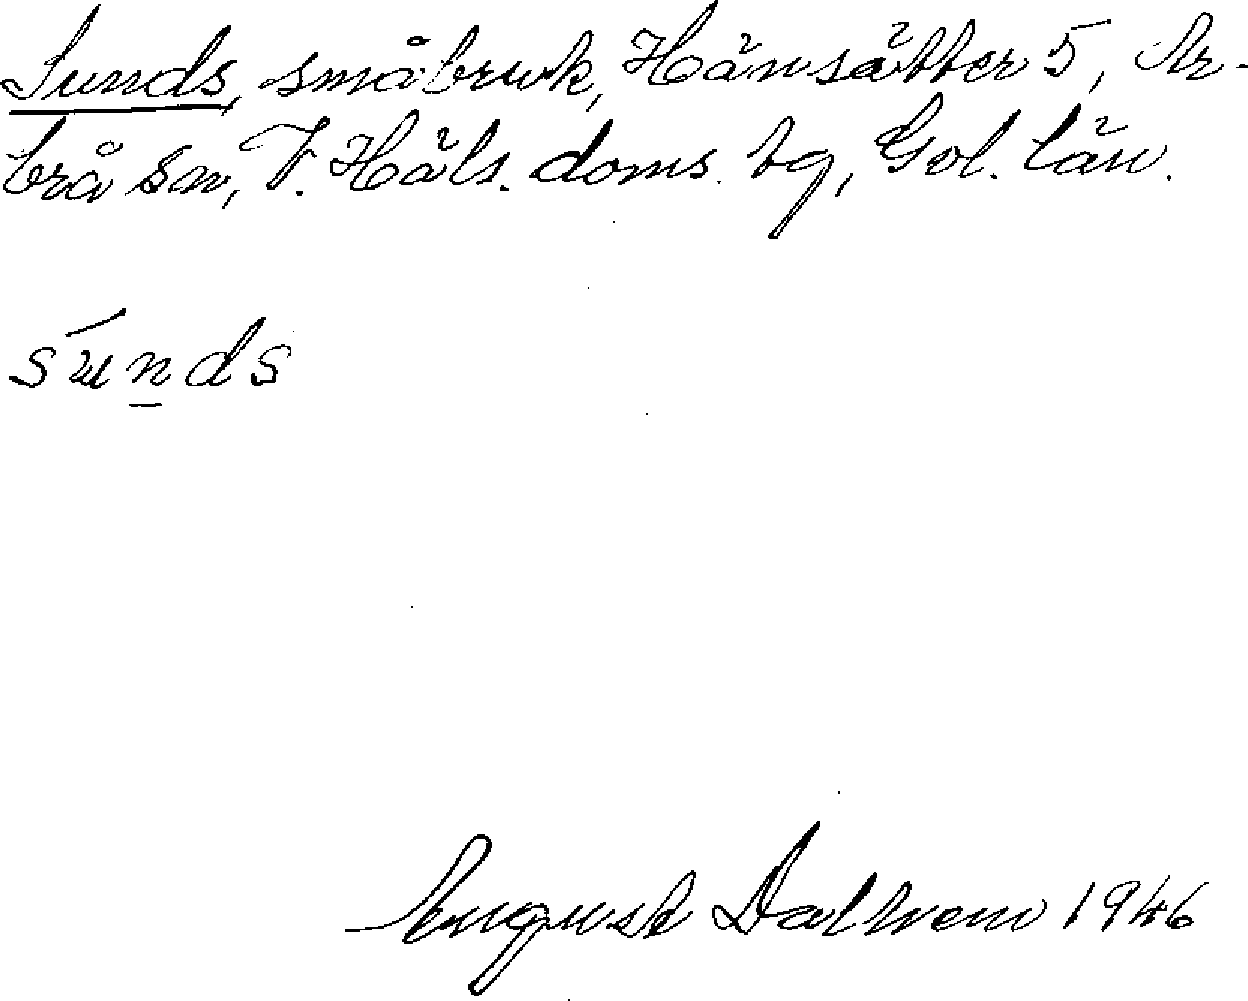 Sunds, småbruk, Hänsätter 5, Ar-
brå sn, V. Häls. doms. tg, Gol. län.
súṉds
August Dalhem 1946